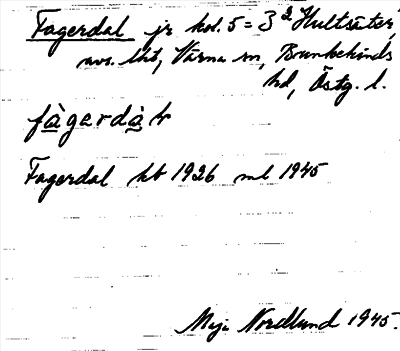 Fagerdal jr kol. 5 = 3 2 Hultsäter,
avs. lht, Värna sn, Bankekinds
hd, Östg. l.
fàgerdàɫ
Fagerdal kb 1926 ml 1945
Maja Nordlund 1945.